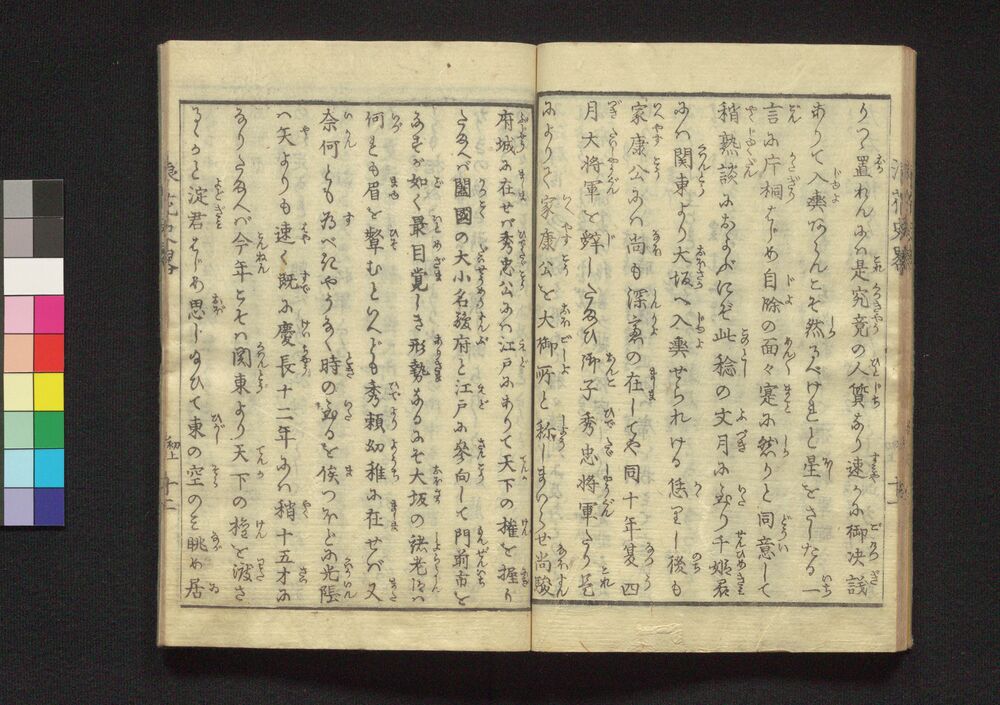 りつゝ置れんにハ是究竟の人質なり速かに御决議
ありて入輿あらんこそ然るべけれと星をさしたる一
言に片桐はじめ自除の面々寔に然りと同意して
稍熟談におよぶにぞ此稔の文月に至り千姫君
にハ関東より大坂へ入輿せられける但し後も
家康公にハ尚も深慮の在してや同十年夏四
月大将軍を辞したまひ御子秀忠将軍たり是
によりて家康公を大御所と称しまゐらせ尚駿
府城に在せバ秀忠公にハ江戸にありて天下の権を握り
たまへバ闔國の大小名駿府と江戸に参向して門前市を
なすが如く最目覚しき形勢なるにぞ大坂の諸老臣ハ
何れも眉を顰むといへども秀頼幼稚に在せバ又
奈何とも為べきやうなく時の至るを俟つほどに光陰
ハ矢よりも速く既に慶長十二年にハ稍十五才に
なりたまへバ今年こそハ関東より天下の権を渡さ
るゝかと淀君はじめ思じ給ひて東の空のミを眺め居
初上
十二